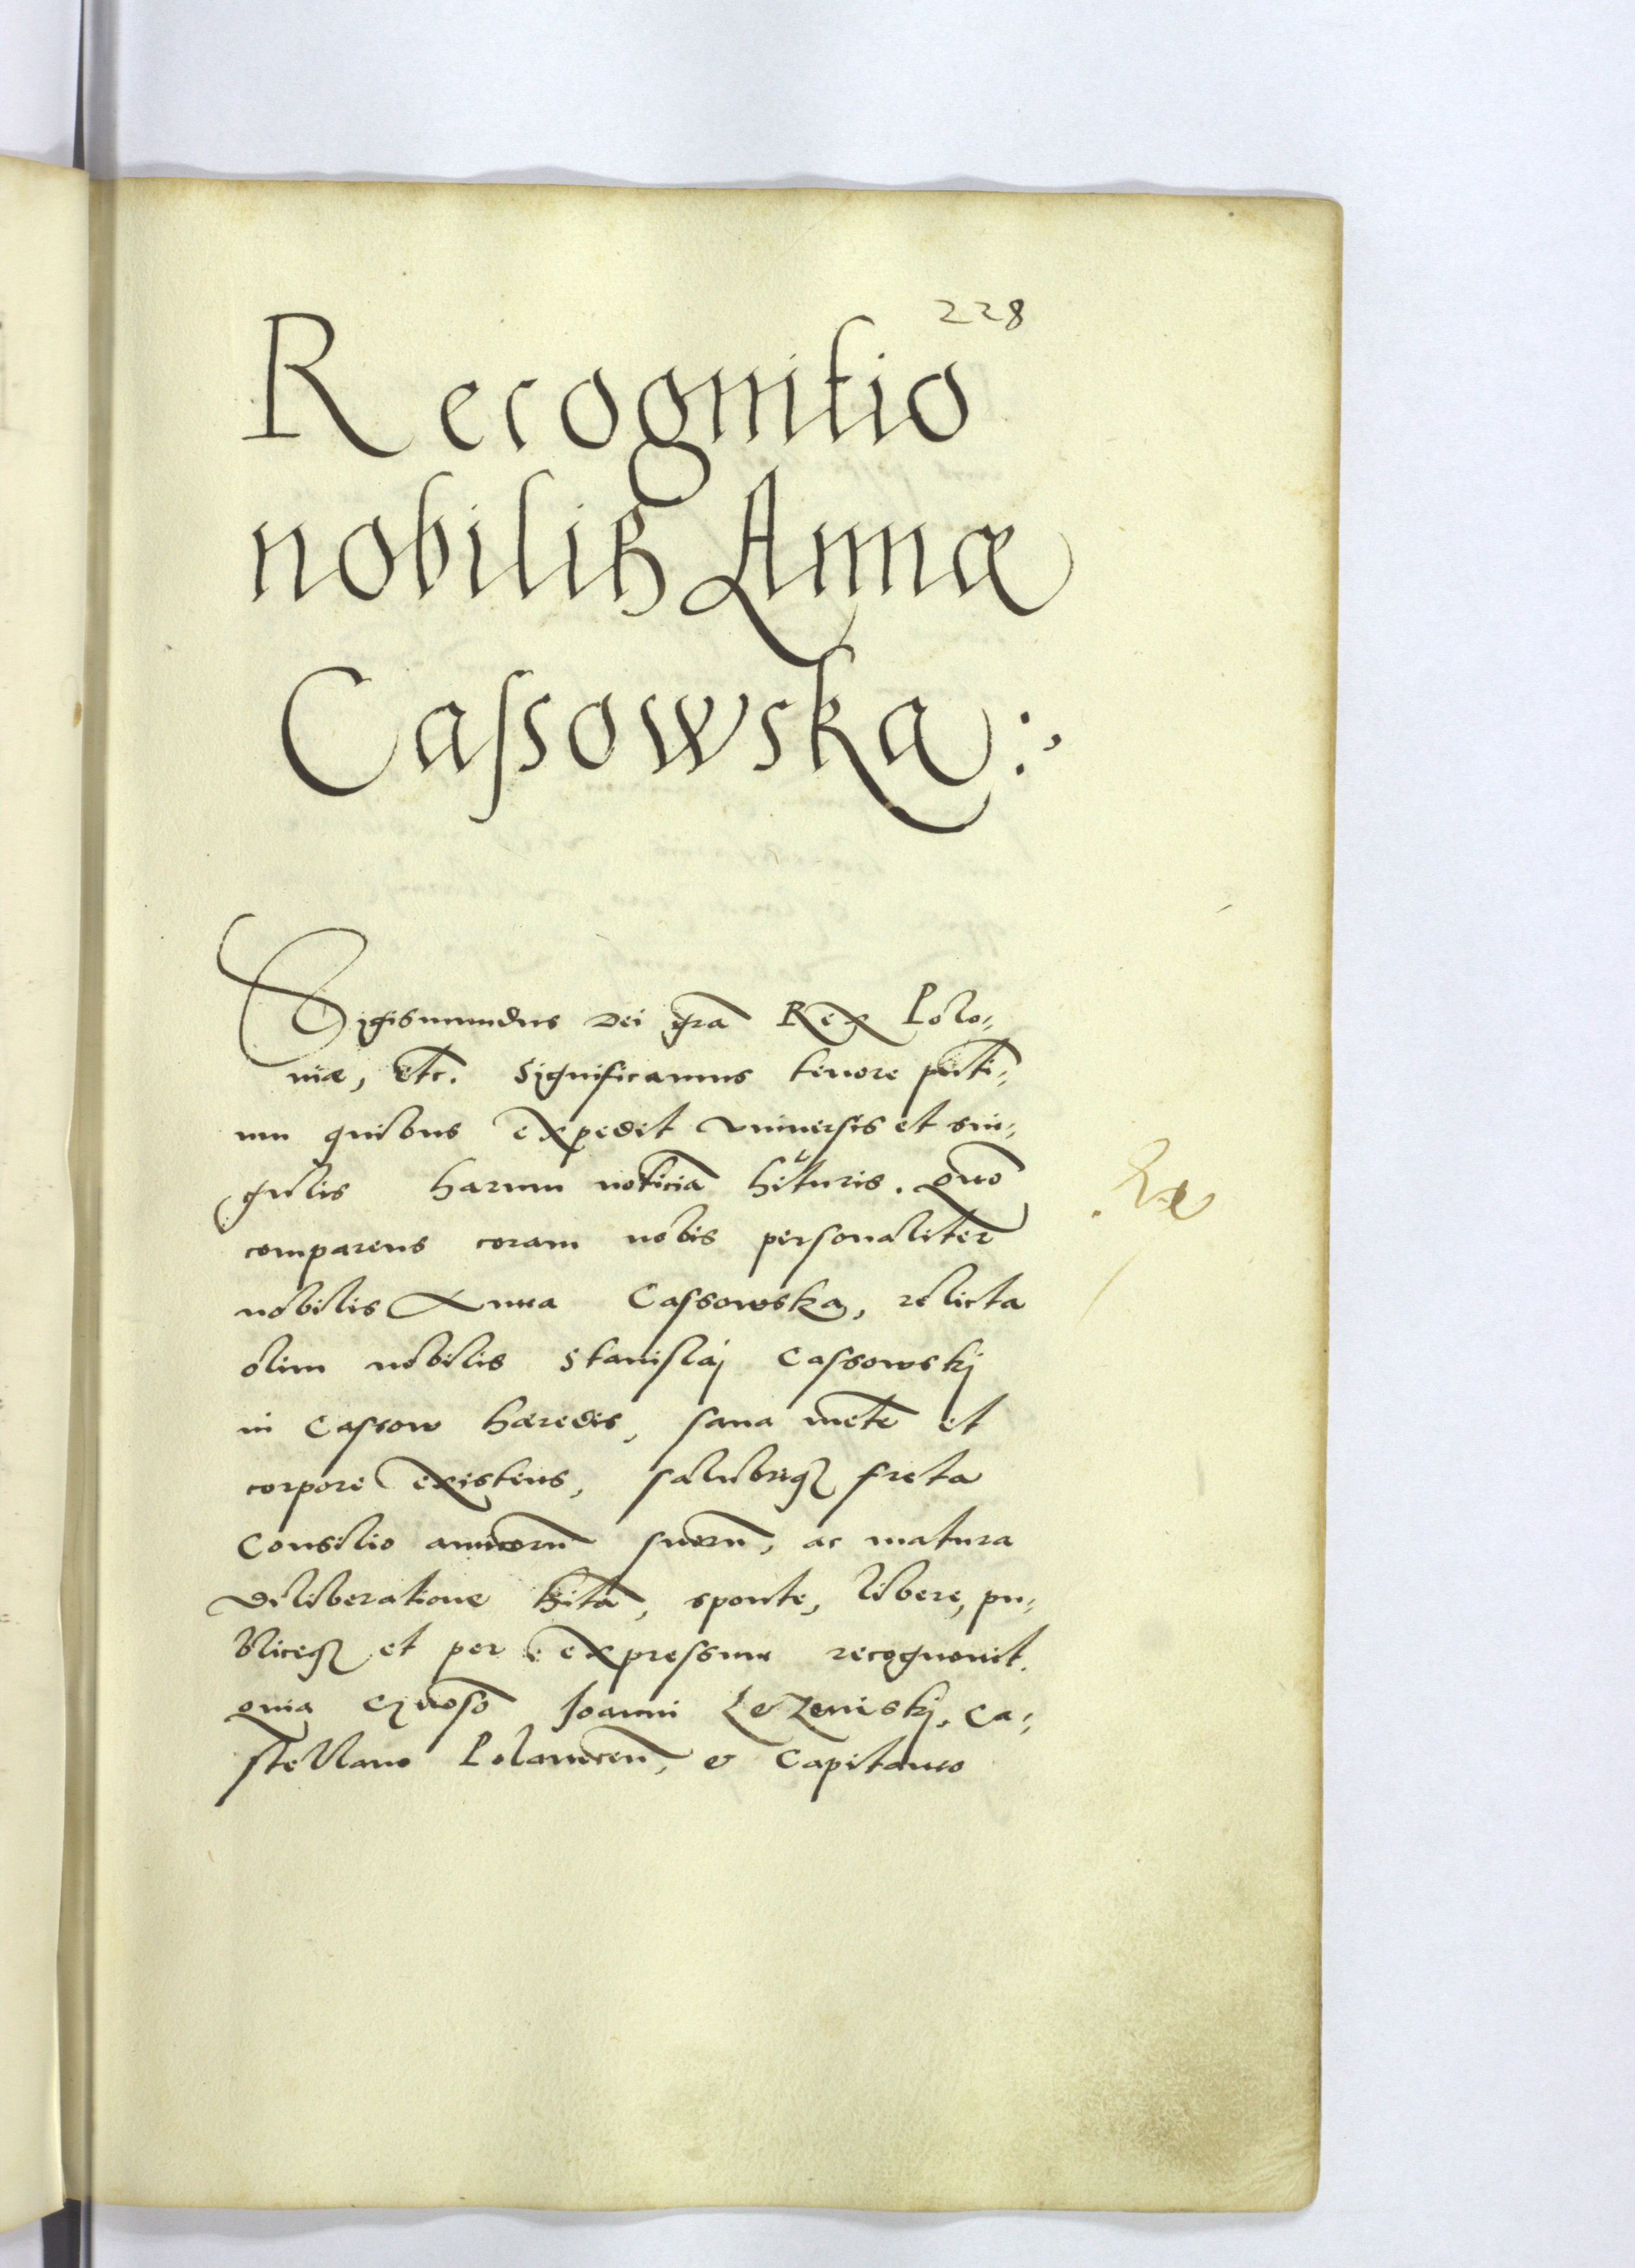 228
Recognitio
nobilis Annæ
Cassowska:,
Sigismundus Dei gra Rex Polo=
niæ, etc. Significamus tenore pnti=
um quibus expedit vniuersis et sin=
gulis harum noticiã hituris. Quo
comparens coram nobis personaliter
nobilis Anna Cassowska, relicta
olim nobilis Stanislaj Cassowskj
in Cassow hæredis, sana mẽte et
corpore existens, salubriq; freta
Consilio amicorũ suorũ, ac matura
deliberatione hita, sponte, libere, pu=
bliceq; et per expressum recognouit.
quia gñoso Joanni Lezenskj, Ca=
stellano Polanecen, & Capitaneo